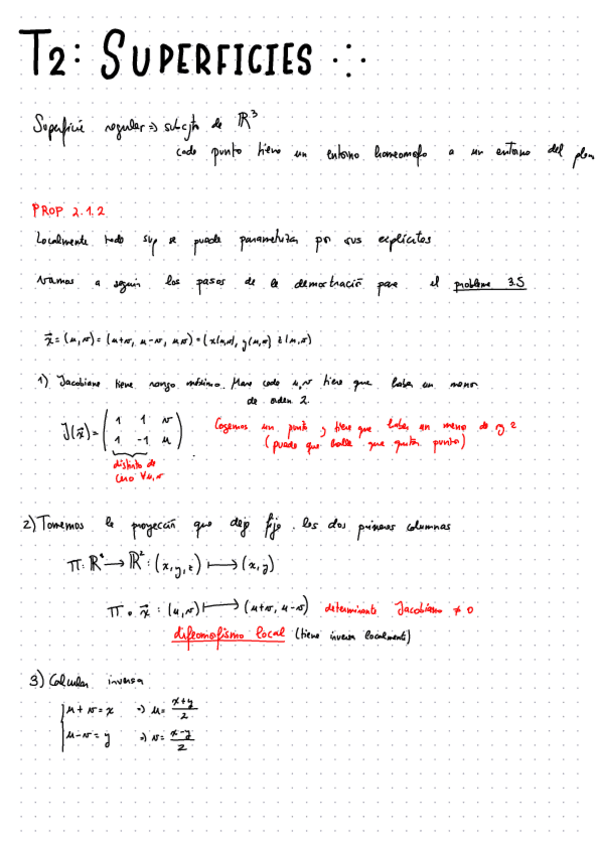 T2: SUPERFICIES
Superficie regular => subcjto de ℝ³
cada punto tiene un entorno homeomofo a un entorno del plano
PROP 2.1.2
Localmente toda sup se puede parametrizar por sus explícitas
Vamos a seguir los pasos de la demostración para el problema 3.5
x⃗ = (u,v) = (u+v, u-v, uv) = (x(u,v), y(u,v), z(u,v))
1) Jacobiano tiene rango máximo. Para cada u,v tiene que haber un menor
de orden 2.
J(x⃗) = ( 1 1 v
1 -1 u )
distinto de
cero ∀u,v
Cogemos un punto y tiene que haber un menor de o 2
(puede que haya que quitar puntos)
2) Tomemos la proyección que deja fijo los dos primeros columnas
π: ℝ³ → ℝ² : (x,y,z) ↦ (x,y)
π ∘ x⃗ : (u,v) ↦ (u+v, u-v) determinante Jacobiano ≠ 0
difeomofismo local (tiene inversa localmente)
3) Calcular inversa
u+v = x => u = (x+y)/2
u-v = y => v = (x-y)/2